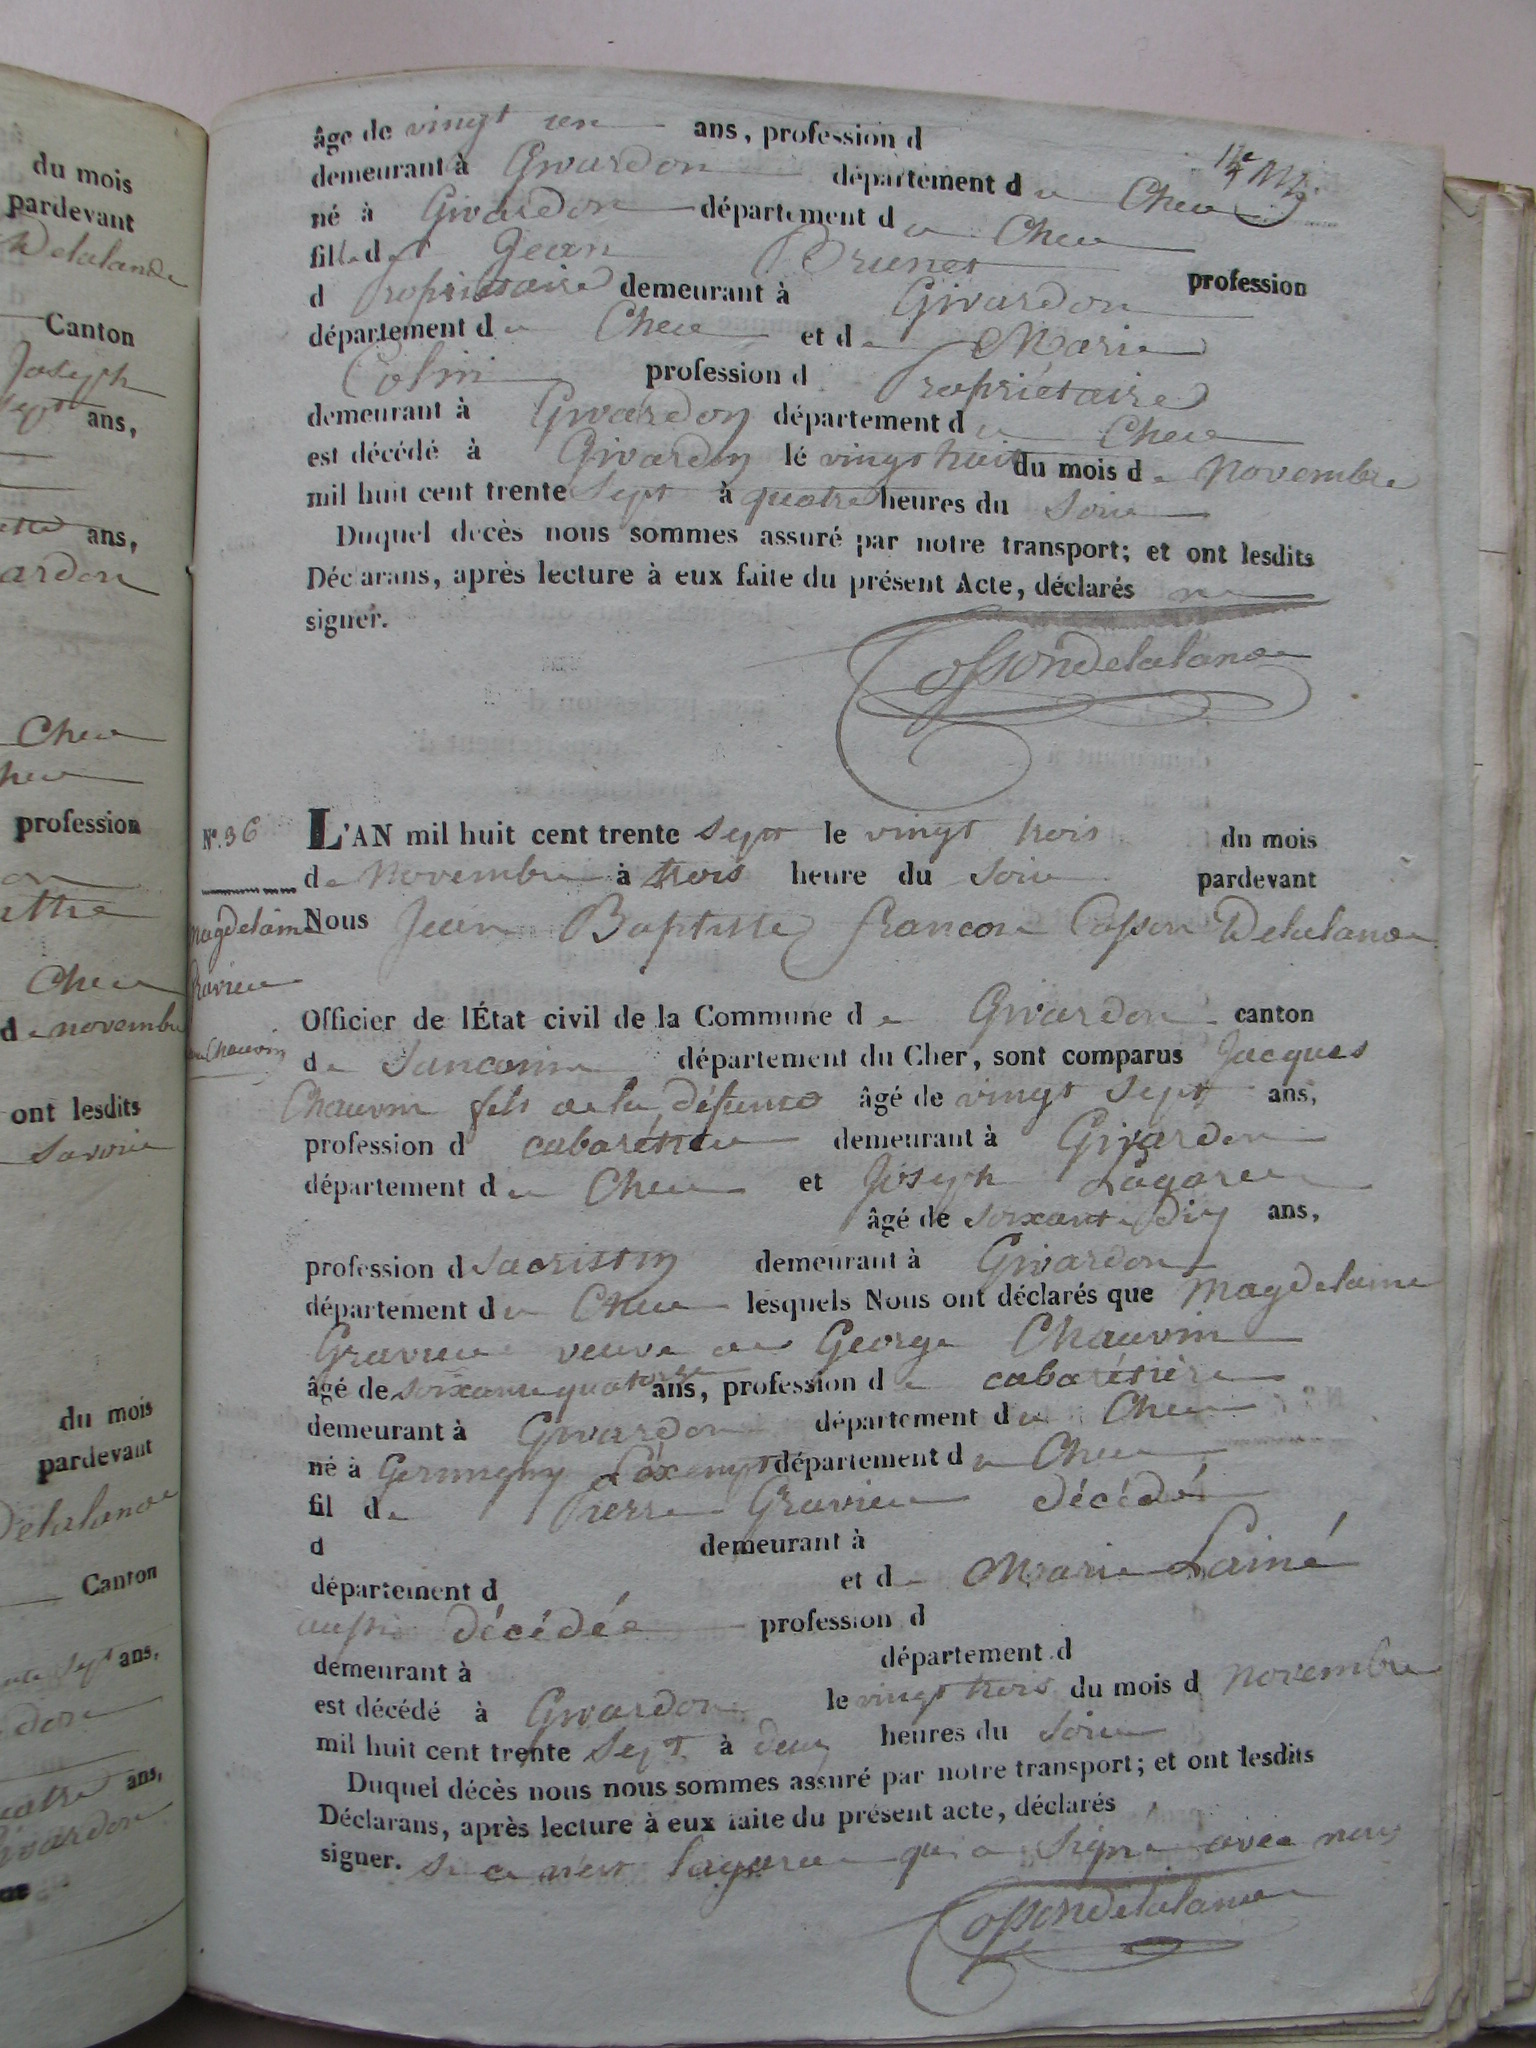 du mois
pardevant
Delalande
Canton
Joseph
sept ans,
ans,
ardon
Cher
profession
Cher
d e novembre
ont lesdits
Savoir
du mois
pardevant
Delalande
Canton
sept ans,
quatre ans,
Givardon
âge de vingt un ans, profession d
demeurant à Givardon département d u Cher
né à Givardon département d u Cher
fille d e Jean Brunet profession
d Propriétaire demeurant à Givardon
département d u Cher et d e Marie
Colin profession d Propriétaire
demeurant à Givardon département d u Cher
est décédé à Givardon lé vingt huit du mois d e Novembre
mil huit cent trente sept à quatre heures du Soir
Duquel decès nous sommes assuré par notre transport; et ont lesdits
Déclarans, après lecture à eux faite du présent Acte, déclarés ne
signer.
Cossondelalande
N°. 36
Magdelaine
Gravier
Ve Chauvin
L'AN mil huit cent trente sept le vingt trois du mois
d e Novembre à trois heure du Soir pardevant
Nous Jean Baptiste francois Cosson Delalande
Officier de lÉtat civil de la Commune d e Givardon canton
d e Sancoins département du Cher, sont comparus Jacques
Chauvin fils de la défunte âgé de vingt sept ans,
profession d cabarétier demeurant à Givardon
département d u Cher et Joseph Lagarue
âgé de soixante Dix ans,
profession d Sacristin demeurant à Givardon
département d u Cher lesquels Nous ont déclarés que Magdelaine
Gravier veuve de George Chauvin
âgé de soixante quatorze ans, profession d e cabarétière
demeurant à Givardon département d u Cher
né à Germigny L'exempt département d u Cher
fil d e Pierre Gravier décédé
d demeurant à
département d et d e Marie Lainé
aussi décédée profession d
demeurant à département d
est décédé à Givardon le vingt trois du mois d Novembre
mil huit cent trente Sept à deux heures du Soir
Duquel décès nous nous sommes assuré par notre transport; et ont lesdits
Déclarans, après lecture à eux faite du présent acte, déclarés
signer. Si ce n'est Lagarue qui a signé avec nous
Cossondelalande